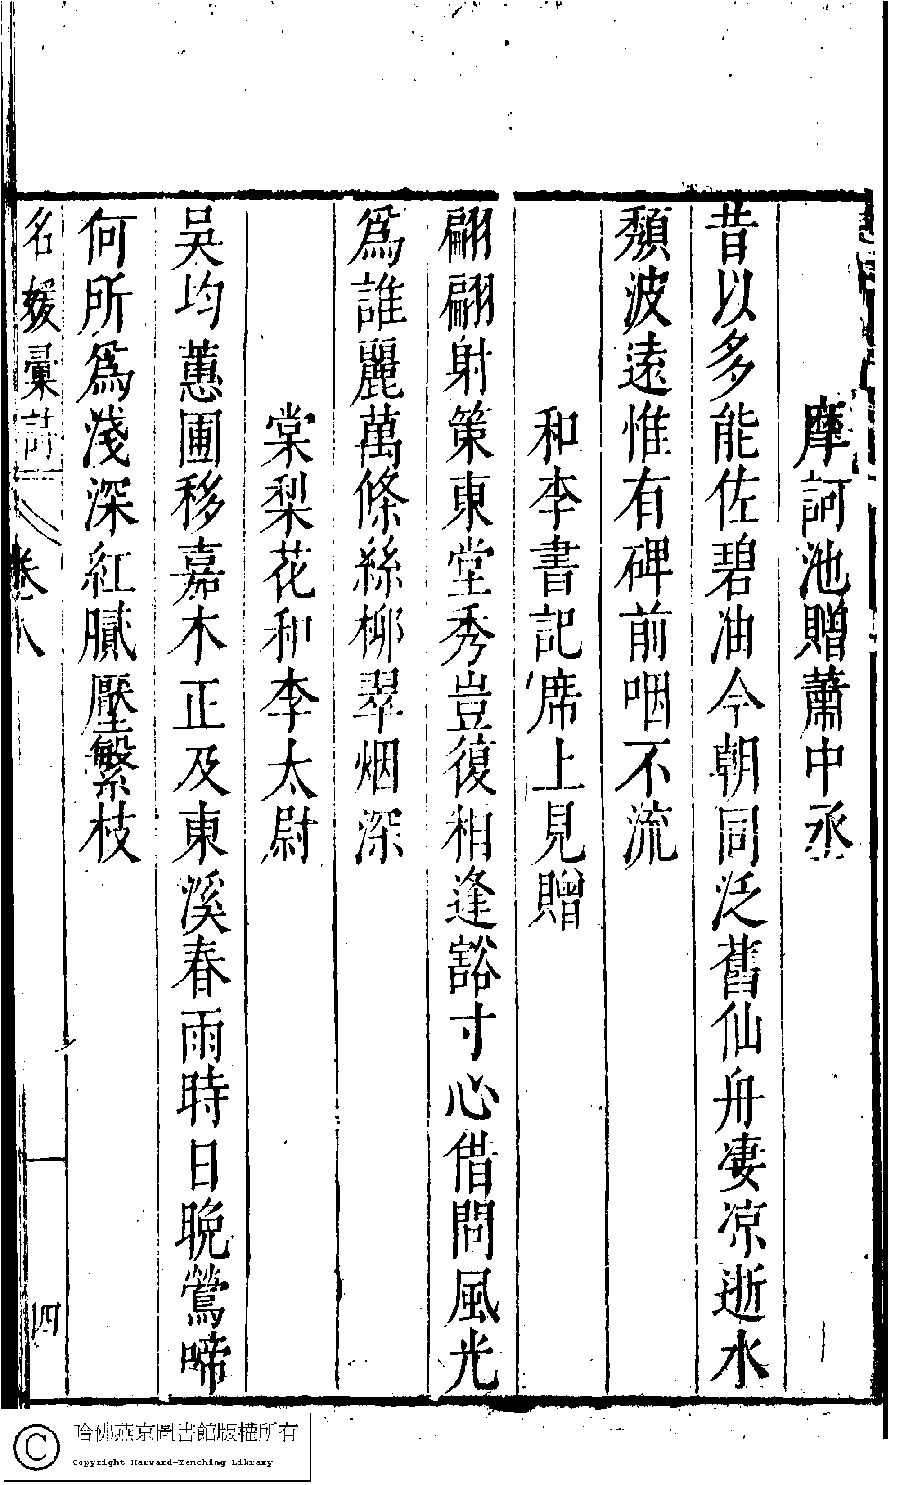 摩訶池贈蕭中丞
昔以多能佐碧油今朝同泛舊仙舟凄凉逝水
頽波遠惟有碑前咽不流
和李書記席上見贈
翩翩射策東堂秀豈復相逢豁寸心借問風光
爲誰麗萬條絲柳翠烟深
棠梨花和李太尉
吳均蕙圃移嘉木正及東溪春雨時日晚鶯啼
何所爲淺深紅膩壓繁枝
名媛彙詩
卷八
四
哈佛燕京圖書館版權所有
Copyright Harvard-Yenching Library